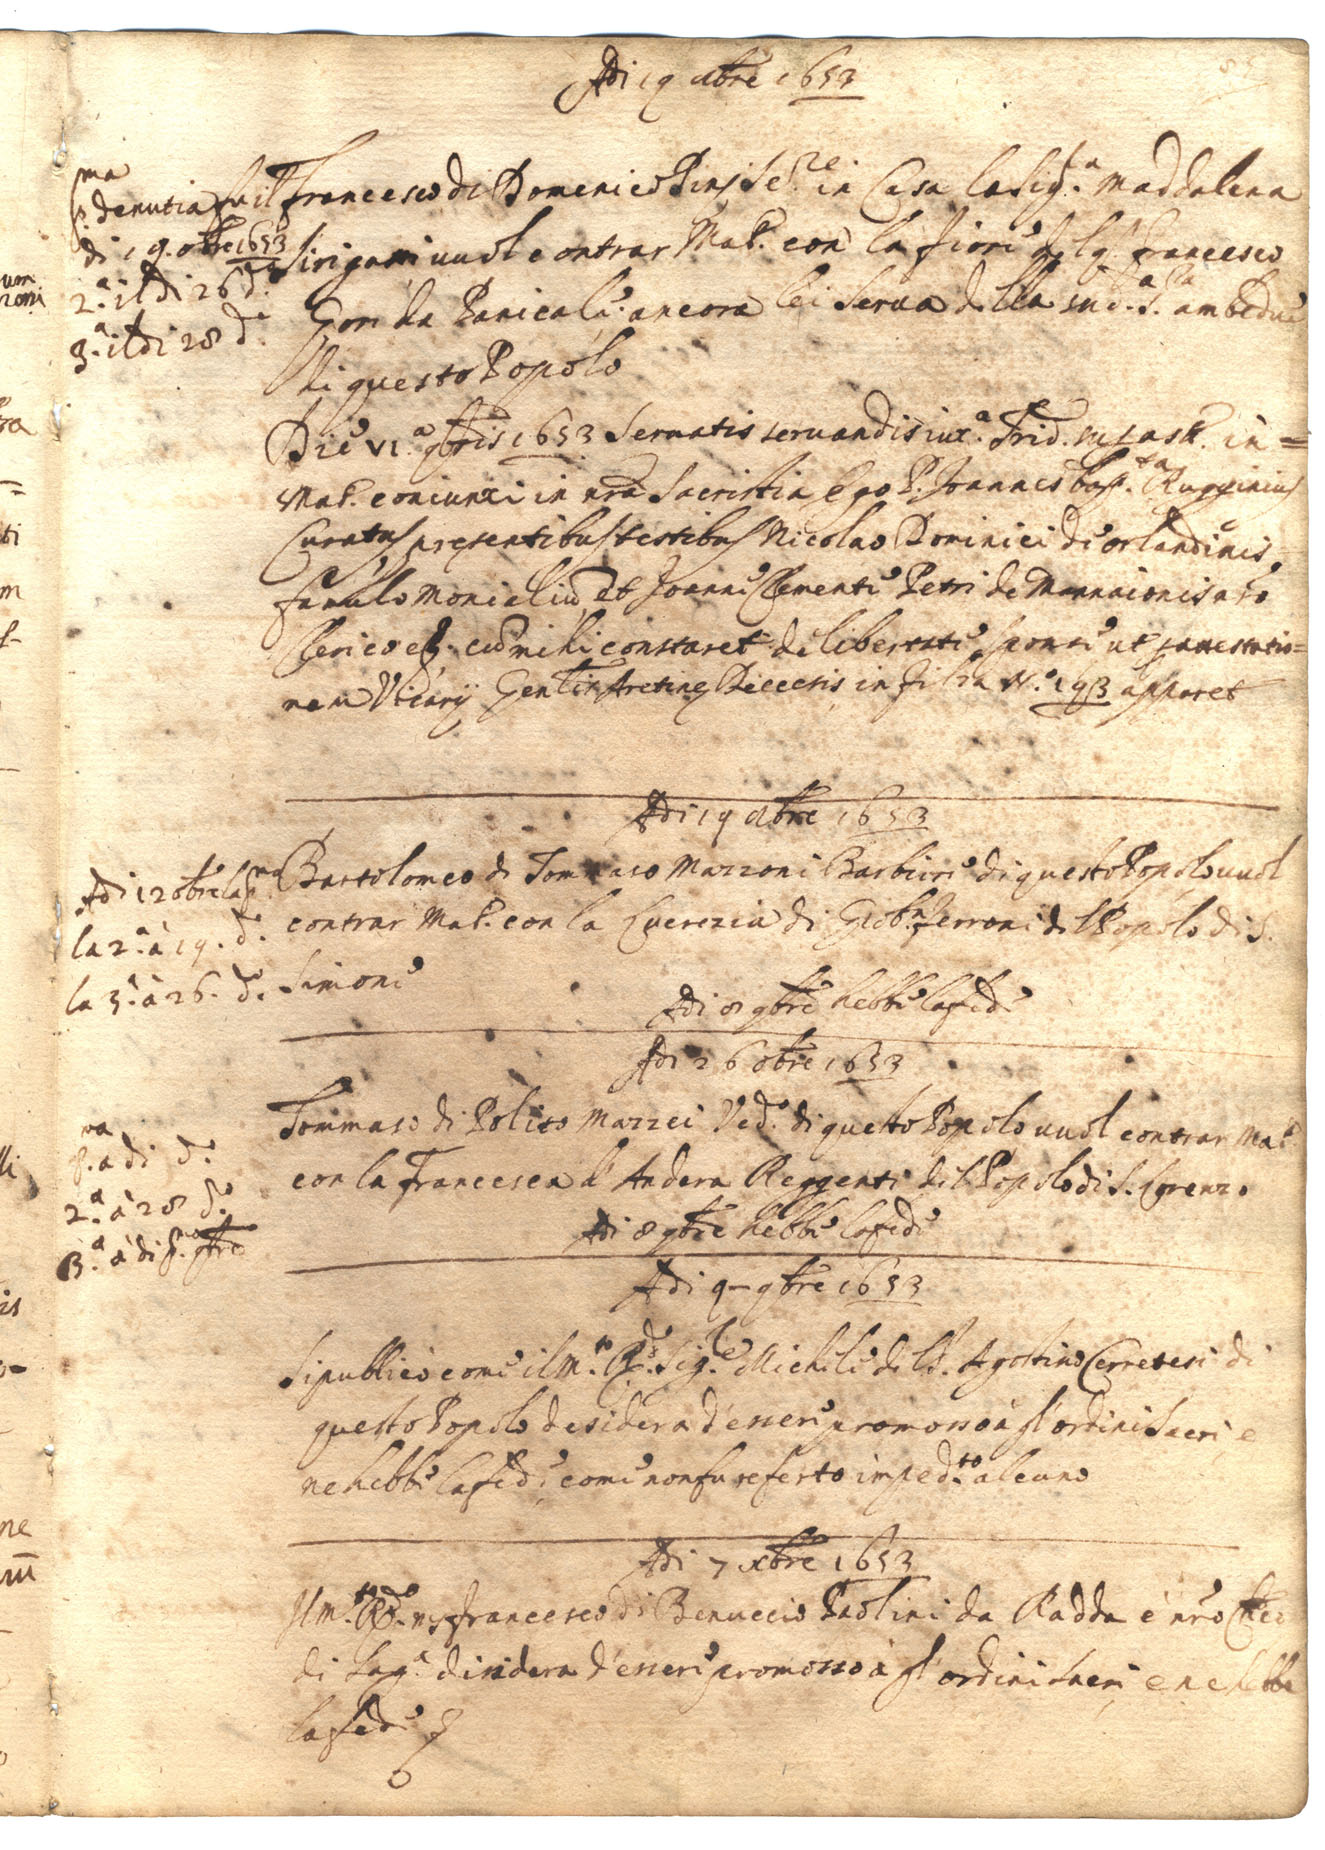 Adi 19 8bre 1653
p.ma denutia fu il
di 19. 8bre 1653
2.a il di 26 d.o
3.a il di 28 d.o
Francesco di Domenico Pins Se.re in Casa la Sig.a Maddalena
Sirigatti vuol contrar Mat. con la Fiore del q. Francesco
Gori da Panicale ancora lei Serva della sud.a S.ra ambedue
di questo Popolo
Die VI.a 9bris 1653 Servatis servandis iux.a Trid. in
Mat. coniunxi in nrã Sacristia Ego P. Joannes bap.ta Rugginius
Curatus presentibus testibus Nicolao Dominici de Orlandinis
famulo Monialiũ et Joanne Clemente Petri de Mannaionis
Clerico et cũ mihi constaret de libertate sponse ut
nem Vicarij Gen.lis Aretine Diecesis in filza N.o 193 apparet
Adi 19 8bre 1653
Adi 12 8bre la p.ma
la 2.a à 19. d.o
la 3.a à 26. d.o
Bartolomeo di Tommaso Mazzoni Barbiere di questo Popolo vuol
contrar Mat. con la Lucrezia di Giob.a Ferroni del Popolo di S.
Simone
Adi 8 9bre hebbe la fede
Adi 26 8bre 1653
p.a adi d.o
2.a à 28 d.o
3.a à di p.mo 9bre
Tommaso di Polito Mazzei Ved.o di questo Popolo vuol contrar Mat.
con la Francesca d' Andera Reggenti del Popolo di S. Lorenzo
Adi 8 9bre hebbe la fede
Adi 9 9bre 1653
Si publicò come il M.to R.do Sig.re Michele del S. Agostino Cerretesi di
questo Popolo desidera d'essere promosso à gl'ordini Sacri e
ne hebbe la fede come non fu referto imped.to alcuno
Adi 7 xbre 1653
Il M.to R.do ms Francesco di Benuccio Paolini da Radda e nrõ Chco
di Sag.a disidera d'essere promosso à gl'ordini sacri e ne hebbe
la fede